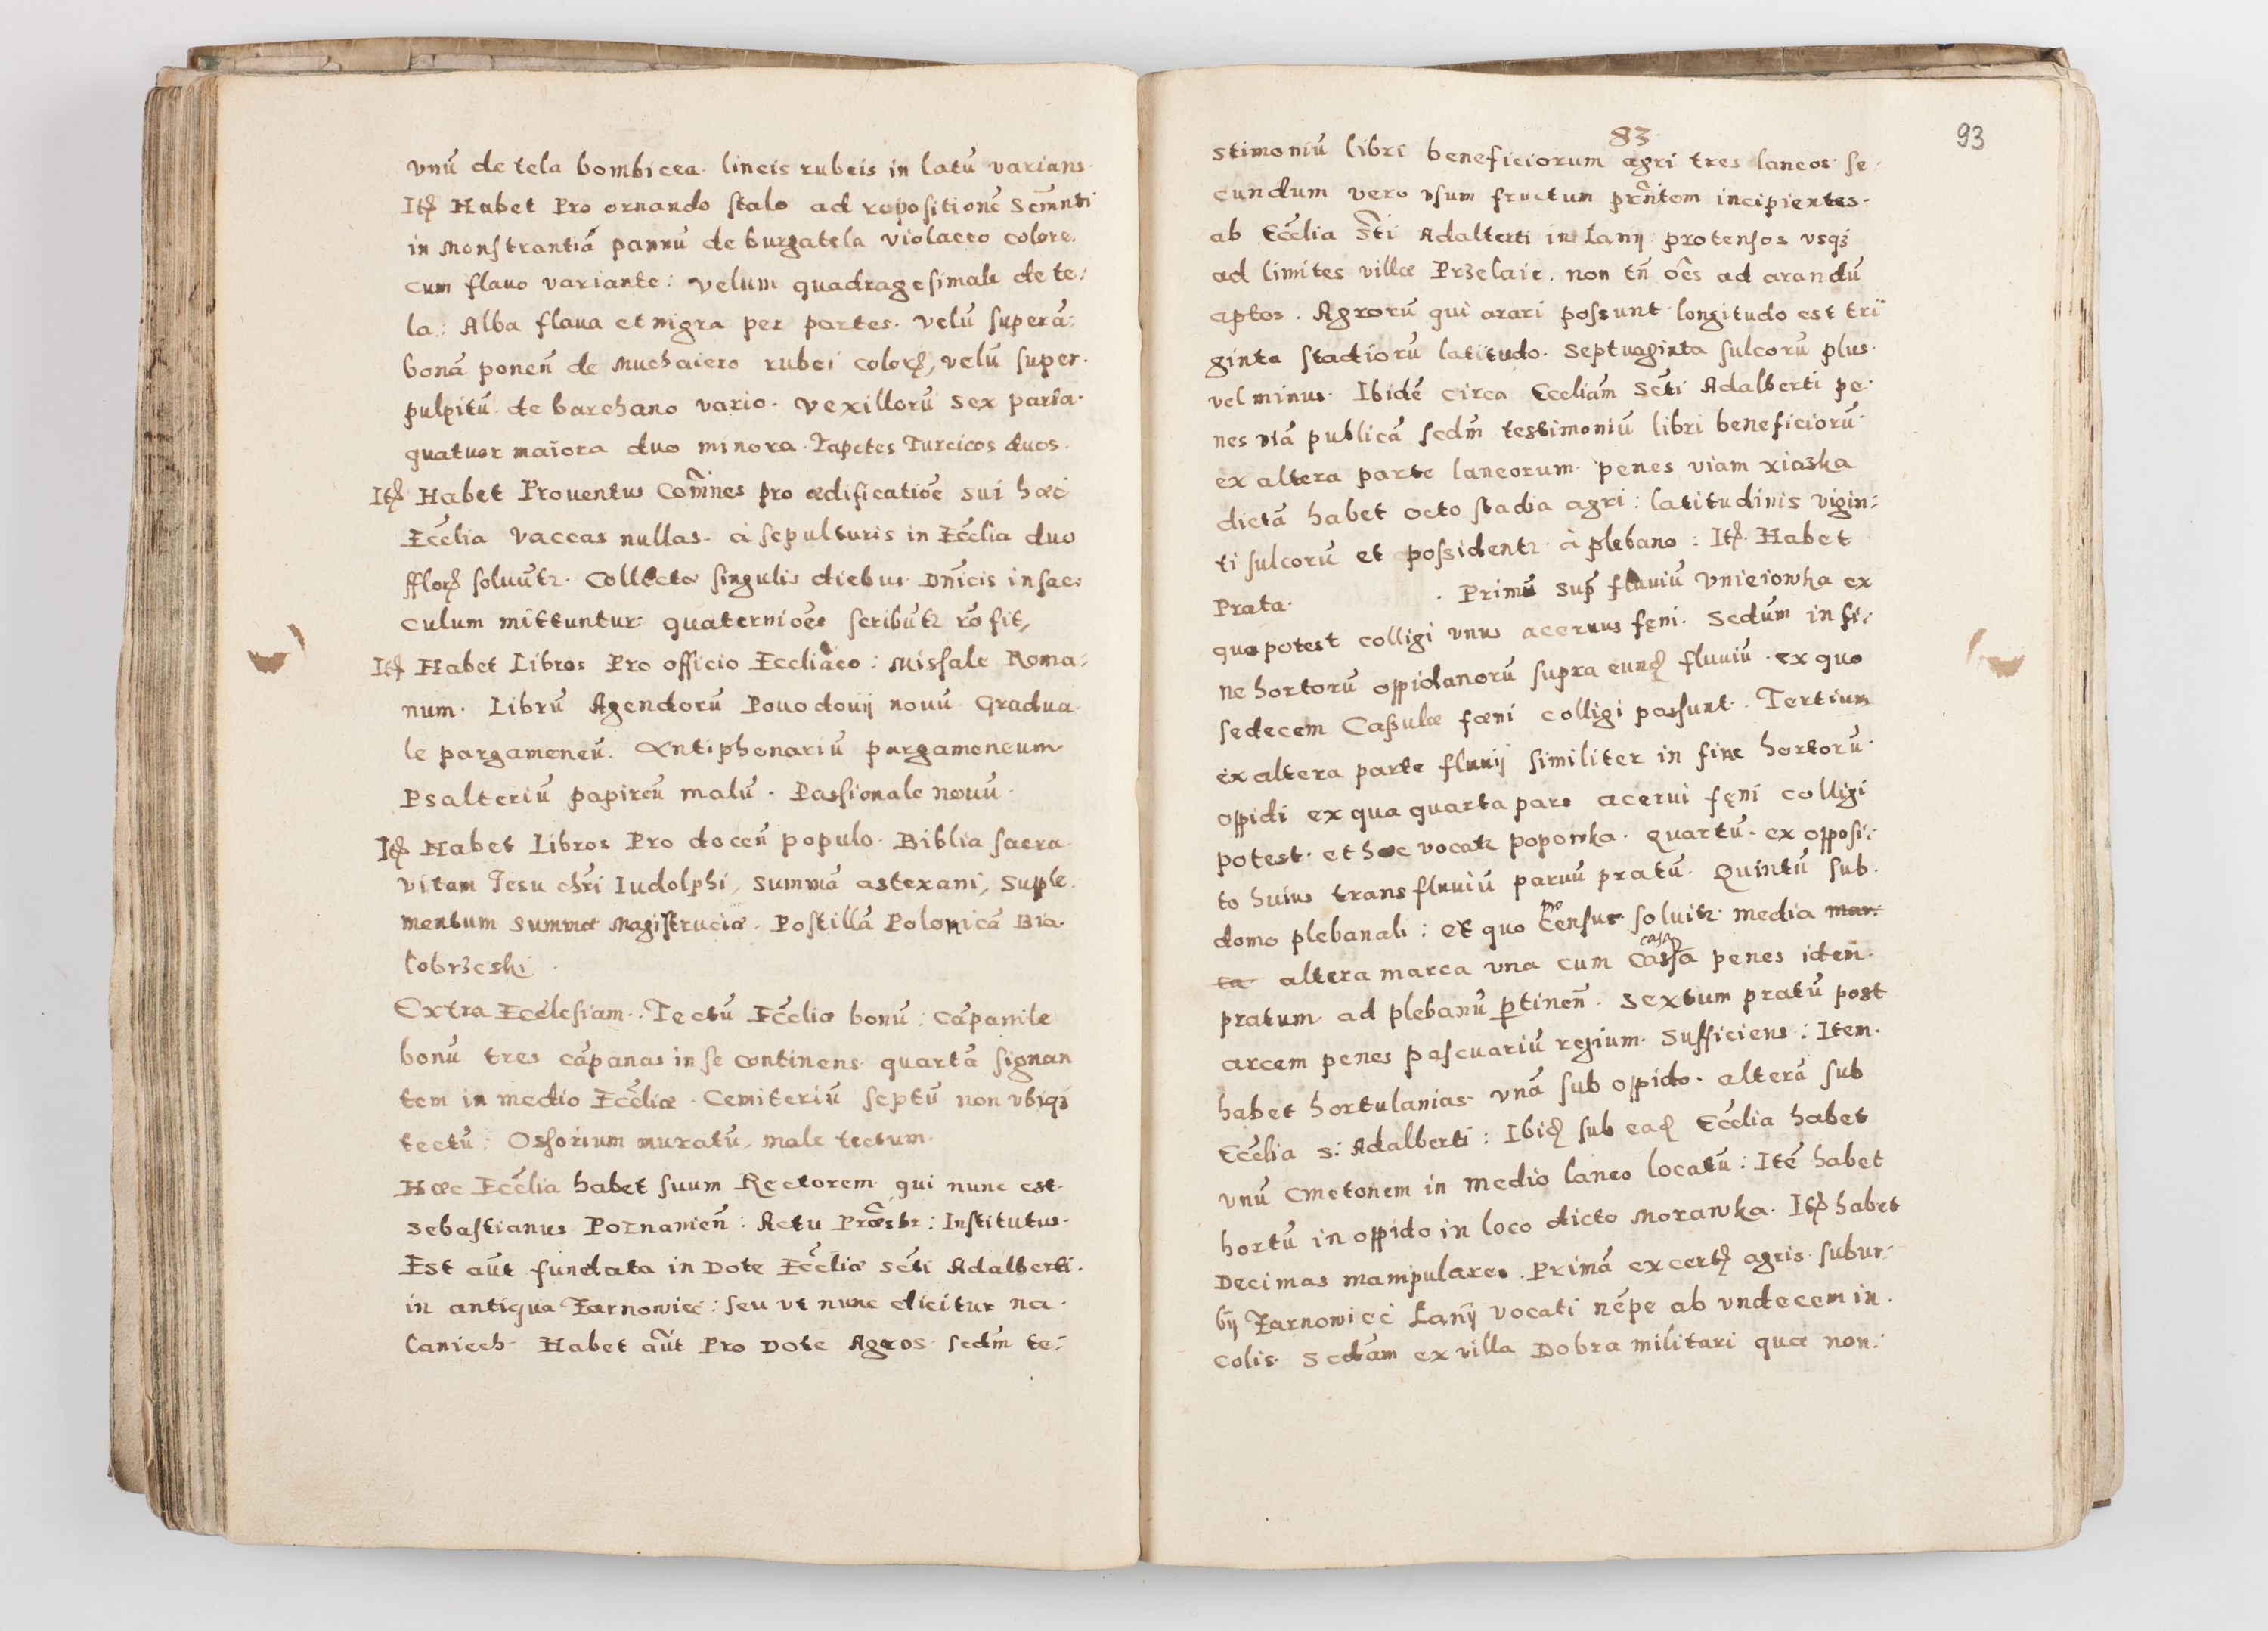 vnũ de tela bombicea lineis rubeis in latũ varians
Itȩ Habet Pro ornando stalo ad repositionẽ Scm̃nti
in Monstrantiã pannũ de burgatela violaceo colore.
cum flauo variante: velum quadragesimale de te:
la: Alba flaua et nigra per partes. velũ superã:
bonã ponen̄ de Muchaiero rubei colorꝭ, velũ super.
pulpitũ de barchano vario. vexillorũ sex paria.
quatuor maiora duo minora. Tapetes Turcicos duos.
Itꝭ Habet Prouentus Com̃nes pro ædificatiõe sui hæc
Ecc̃lia vaccas nullas. à sepulturis in Ecc̃lia duo
fflorꝭ soluũtr. Collecta singulis diebus Dn̄icis in sac:
culum mittuntur: quaterniões scribũtr rõ fit,
Itꝭ Habet Libros Pro officio Eccliaco: Missale Roma:
num. Librũ Agendorũ Pouodouij nouũ Gradua.
le pargameneũ. Antiphonariũ pargameneum
Psalteriũ papireũ malũ. Passionale nouũ.
Itꝭ Habet Libros Pro docen̄ populo. Biblia sacra
vitam Jesu chr̃i Iudolphi, Summã astexani, Supple.
mentum Summæ Magistruciæ. Postillã Polonicã Bia.
lobrzeski.
Extra Ecclesiam. Tectũ Ecc̃liæ bonũ: cãpanile
bonũ tres cãpanas in se continens quartã signan
tem in medio Ecc̃liæ. Cemiteriũ septũ non vbiqꝫ
tectũ: Ossorium muratũ, male tectum.
Hæc Ecc̃lia habet suum Rectorem qui nunc est.
Sebastianus Poznanien̄: Actu Præsbr: Institutus.
Est aũt fundata in Dote Ecc̃liæ Scti Adalberti.
in antiqua Zarnowiec: seu vt nunc dicitur na.
laniech Habet aũt Pro Dote Agros sedm̃ te:
83
93
stimoniũ libri beneficiorum agri tres laneos se:
cundum vero vsum fructum prñtem incipientes.
ab Ecc̃lia Sti Adalterti in Lanij protensos vsqꝫ
ad limites villæ Przelaic. non tñ oẽs ad arandũ
aptos. Agrorũ qui arari possunt longitudo est tri
ginta stadiorũ latitudo. Septuaginta sulcorũ plus.
vel minus. Ibidẽ circa Eccliãm Scti Adalberti pe.
nes viã publicã sedm̃ testimoniũ libri beneficiorũ
ex altera parte laneorum. penes viam xiazka
dictã habet octo stadia agri: latitudinis vigin:
ti sulcorũ et possidentr à plebano: Itꝭ Habet
Prata. . Primũ sup̃ fluuiũ Vnieiowka ex
quo potest colligi vnus aceruus fęni. Sedum in fi:
ne hortorũ oppidanorũ supra eundꝭ fluuiũ. ex quo
sedecem Caßulæ fœni colligi possunt. Tertium
ex altera parte fluuij similiter in fine hortorũ
oppidi ex qua quarta pars acerui fęni colligi
potest. et hæc vocatr popowka. quartũ. ex opposi:
to huius trans fluuiũ paruũ pratũ. Quintũ sub.
domo plebanali: ex quo pro census soluitr media mar
ca altera marca vna cum cassa casa penes idem
pratum ad plebanũ ꝑtinen̄. Sextum pratũ post
arcem penes pascuariũ regium. Sufficiens: Item.
habet hortulanias. vnã sub oppido. alterã sub
Ecc̃lia S: Adalberti: Ibidꝭ sub eadꝭ Ecc̃lia habet
vnũ Cmetonem in medio laneo locatũ: Itẽ habet
hortũ in oppido in loco dicto Morawka. Itꝭ habet
Decimas manipulares. Primã ex certꝭ agris subur:
bij Zarnowiec Lanij vocati nẽpe ab vndecem in.
colis. Sedãm ex villa Dobra militari quæ non: